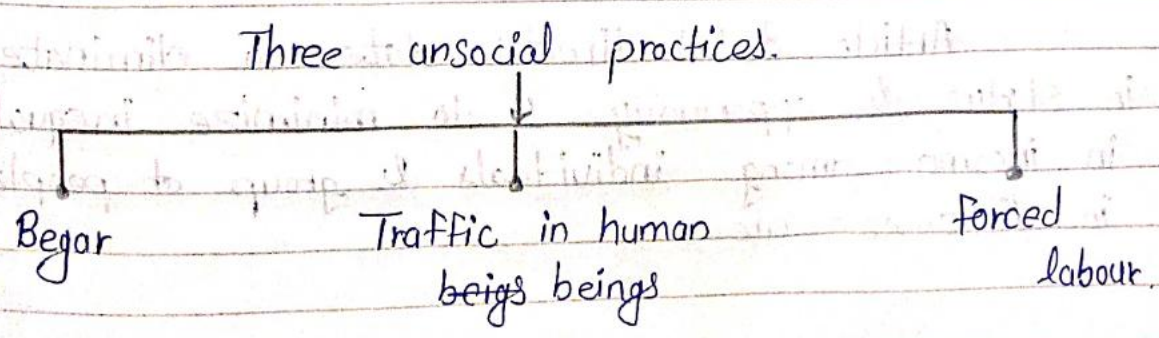 Three unsocial practices.
Begar Traffic in human forced
beigs beings labour.